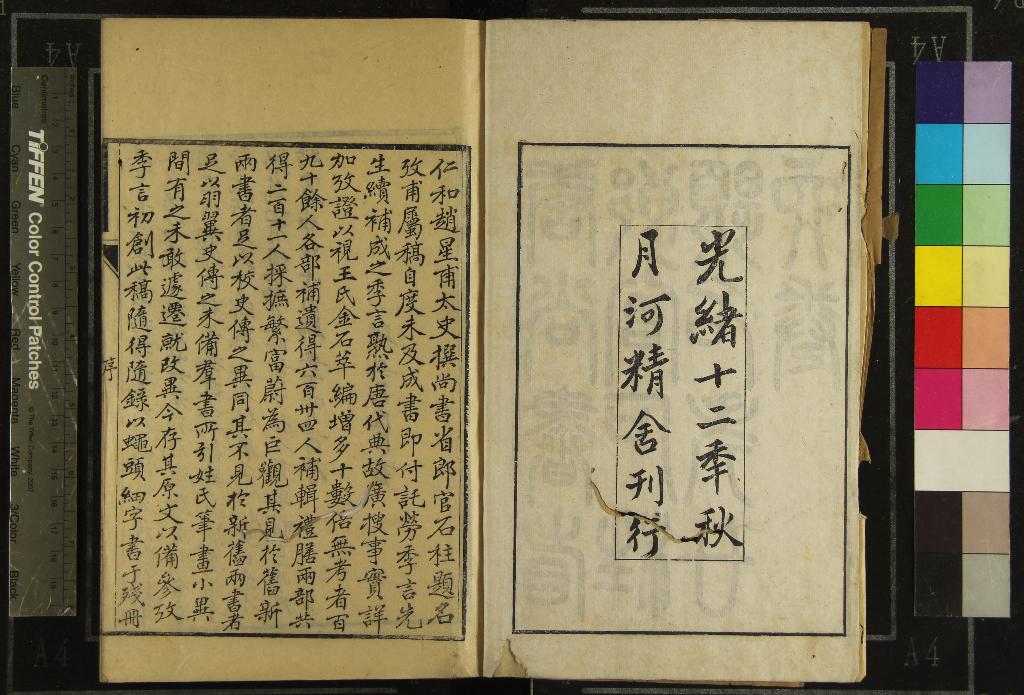 光緒十二季秋
月河精舍刊行
仁和趙星甫太史撰尚書省郎官石柱題名
攷甫屬稿自度未及成書即付託勞季言先
生續補成之季言熟於唐代典故廣搜事實詳
加攷證以視王氏金石萃編增多十數倍無考者百
九十餘人各部補遺得六百卅四人補輯禮膳兩部共
得二百十一人採摭繁富蔚為巨觀其見於舊新
兩書者足以校史傳之異同其不見於新舊兩書者
足以羽翼史傳之未備羣書所引姓氏筆畫小異
間有之未敢遽遷就改異今存其原文以備參攷
季言初創此稿隨得隨錄以蠅頭細字書于殘冊
序
TIFFEN Color Control Patches
© The Tiffen Company, 2007
Centimetres
Inches
Blue
Cyan
Green
Yellow
Red
Magenta
White
3/Color
Black
A4
A4
A4
A4